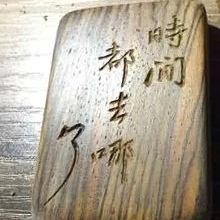 時间
都去哪
了